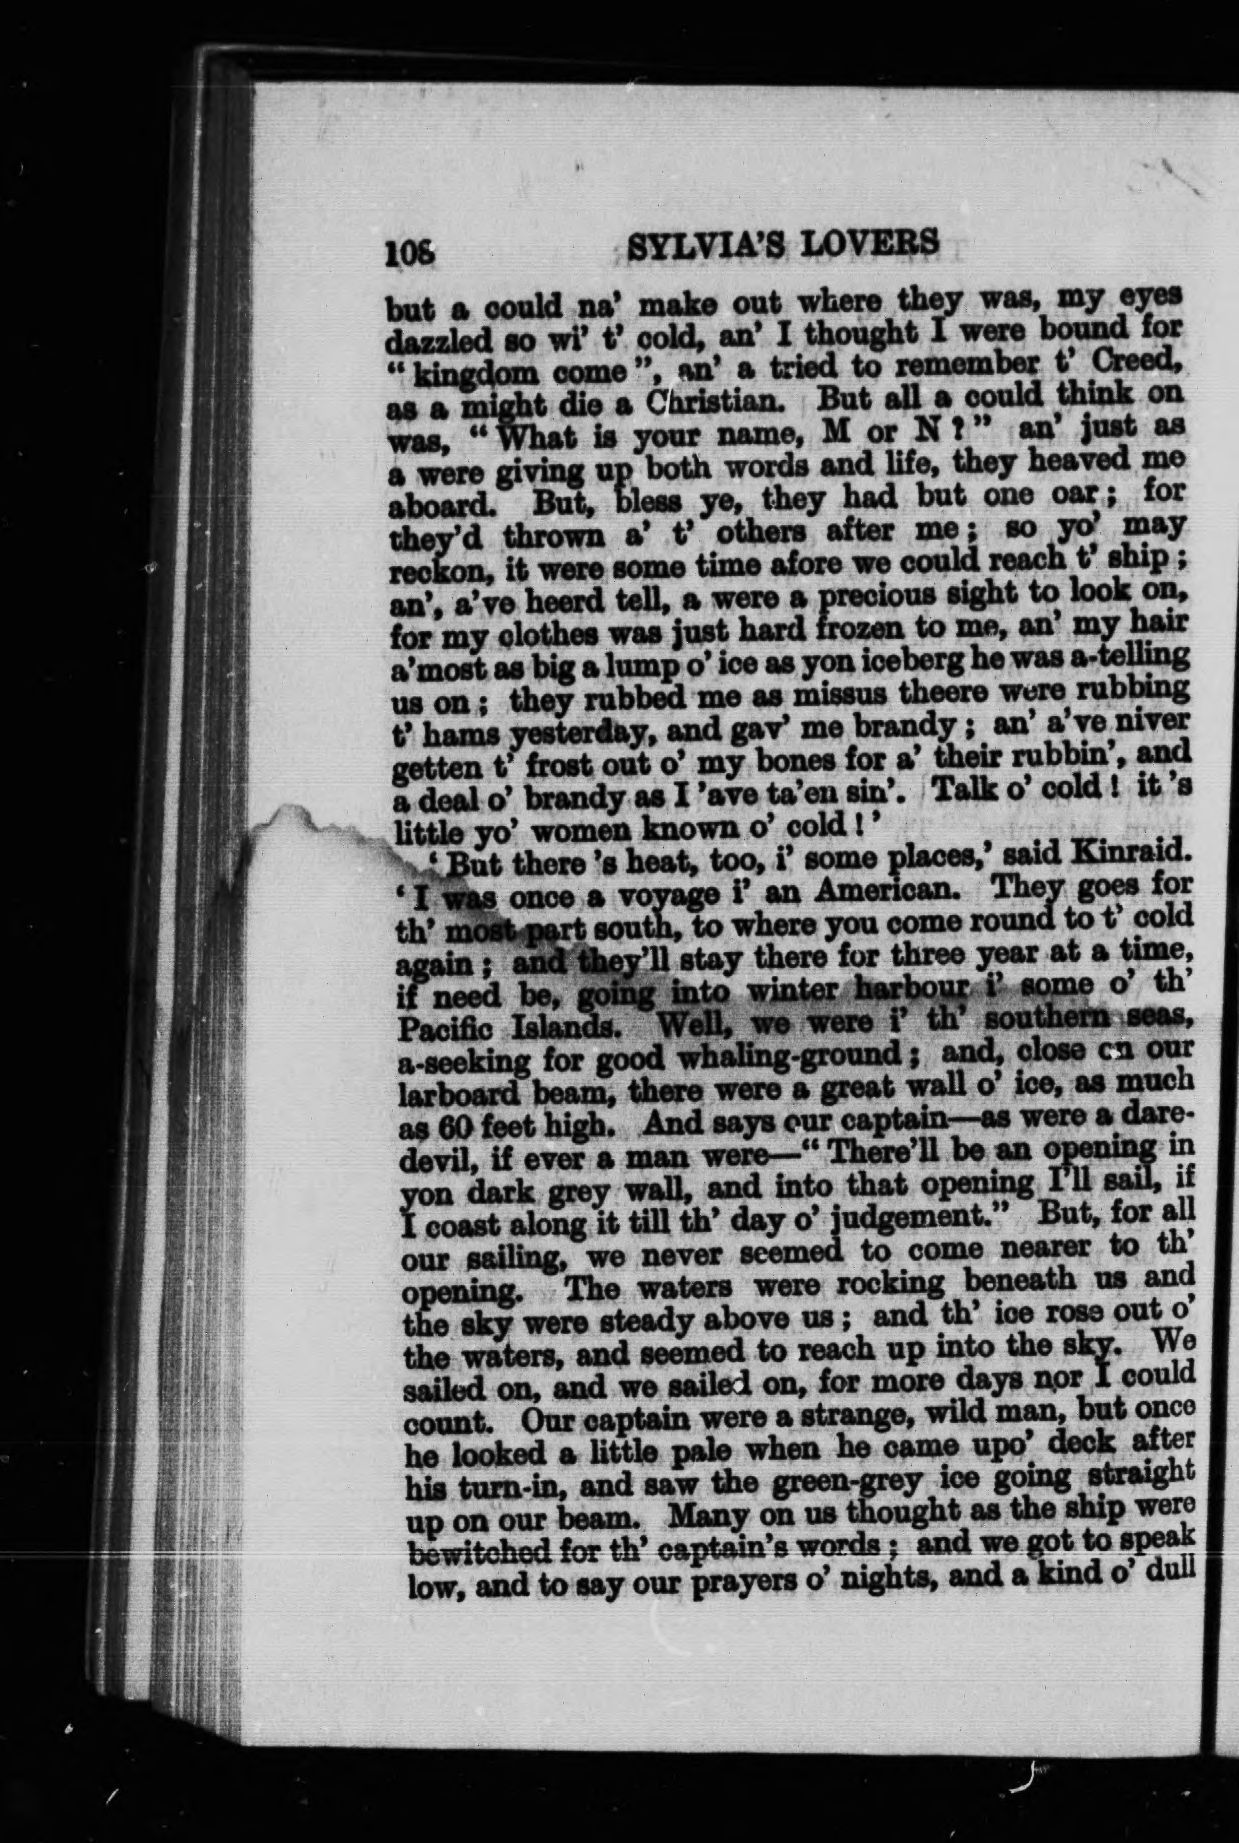 108 SYLVIA'S LOVERS
but a could na' make out where they was, my eyes
dazzled so wi' t' cold, an' I thought I were bound for
“kingdom come”, an' a tried to remember t' Creed,
as a might die a Christian. But all a could think on
was, “What is your name, M or N?” an' just as
a were giving up both words and life, they heaved me
aboard. But, bless ye, they had but one oar; for
they'd thrown a' t' others after me; so yo' may
reckon, it were some time afore we could reach t' ship;
an', a've heerd tell, a were a precious sight to look on,
for my clothes was just hard frozen to me, an' my hair
a'most as big a lump o' ice as yon iceberg he was a-telling
us on; they rubbed me as missus theere were rubbing
t' hams yesterday, and gav' me brandy; an' a've niver
getten t' frost out o' my bones for a' their rubbin', and
a deal o' brandy as I 'ave ta'en sin'. Talk o' cold! it's
little yo' women known o' cold!'
'But there's heat, too, i' some places,' said Kinraid.
'I was once a voyage i' an American. They goes for
th' most part south, to where you come round to t' cold
again; and they'll stay there for three year at a time,
if need be, going into winter harbour i' some o' th'
Pacific Islands. Well, we were i' th' southern seas,
a-seeking for good whaling-ground; and, close on our
larboard beam, there were a great wall o' ice, as much
as 60 feet high. And says our captain—as were a dare-
devil, if ever a man were—“There'll be an opening in
yon dark grey wall, and into that opening I'll sail, if
I coast along it till th' day o' judgement.” But, for all
our sailing, we never seemed to come nearer to th'
opening. The waters were rocking beneath us and
the sky were steady above us; and th' ice rose out o'
the waters, and seemed to reach up into the sky. We
sailed on, and we sailed on, for more days nor I could
count. Our captain were a strange, wild man, but once
he looked a little pale when he came upo' deck after
his turn-in, and saw the green-grey ice going straight
up on our beam. Many on us thought as the ship were
bewitched for th' captain's words; and we got to speak
low, and to say our prayers o' nights, and a kind o' dull